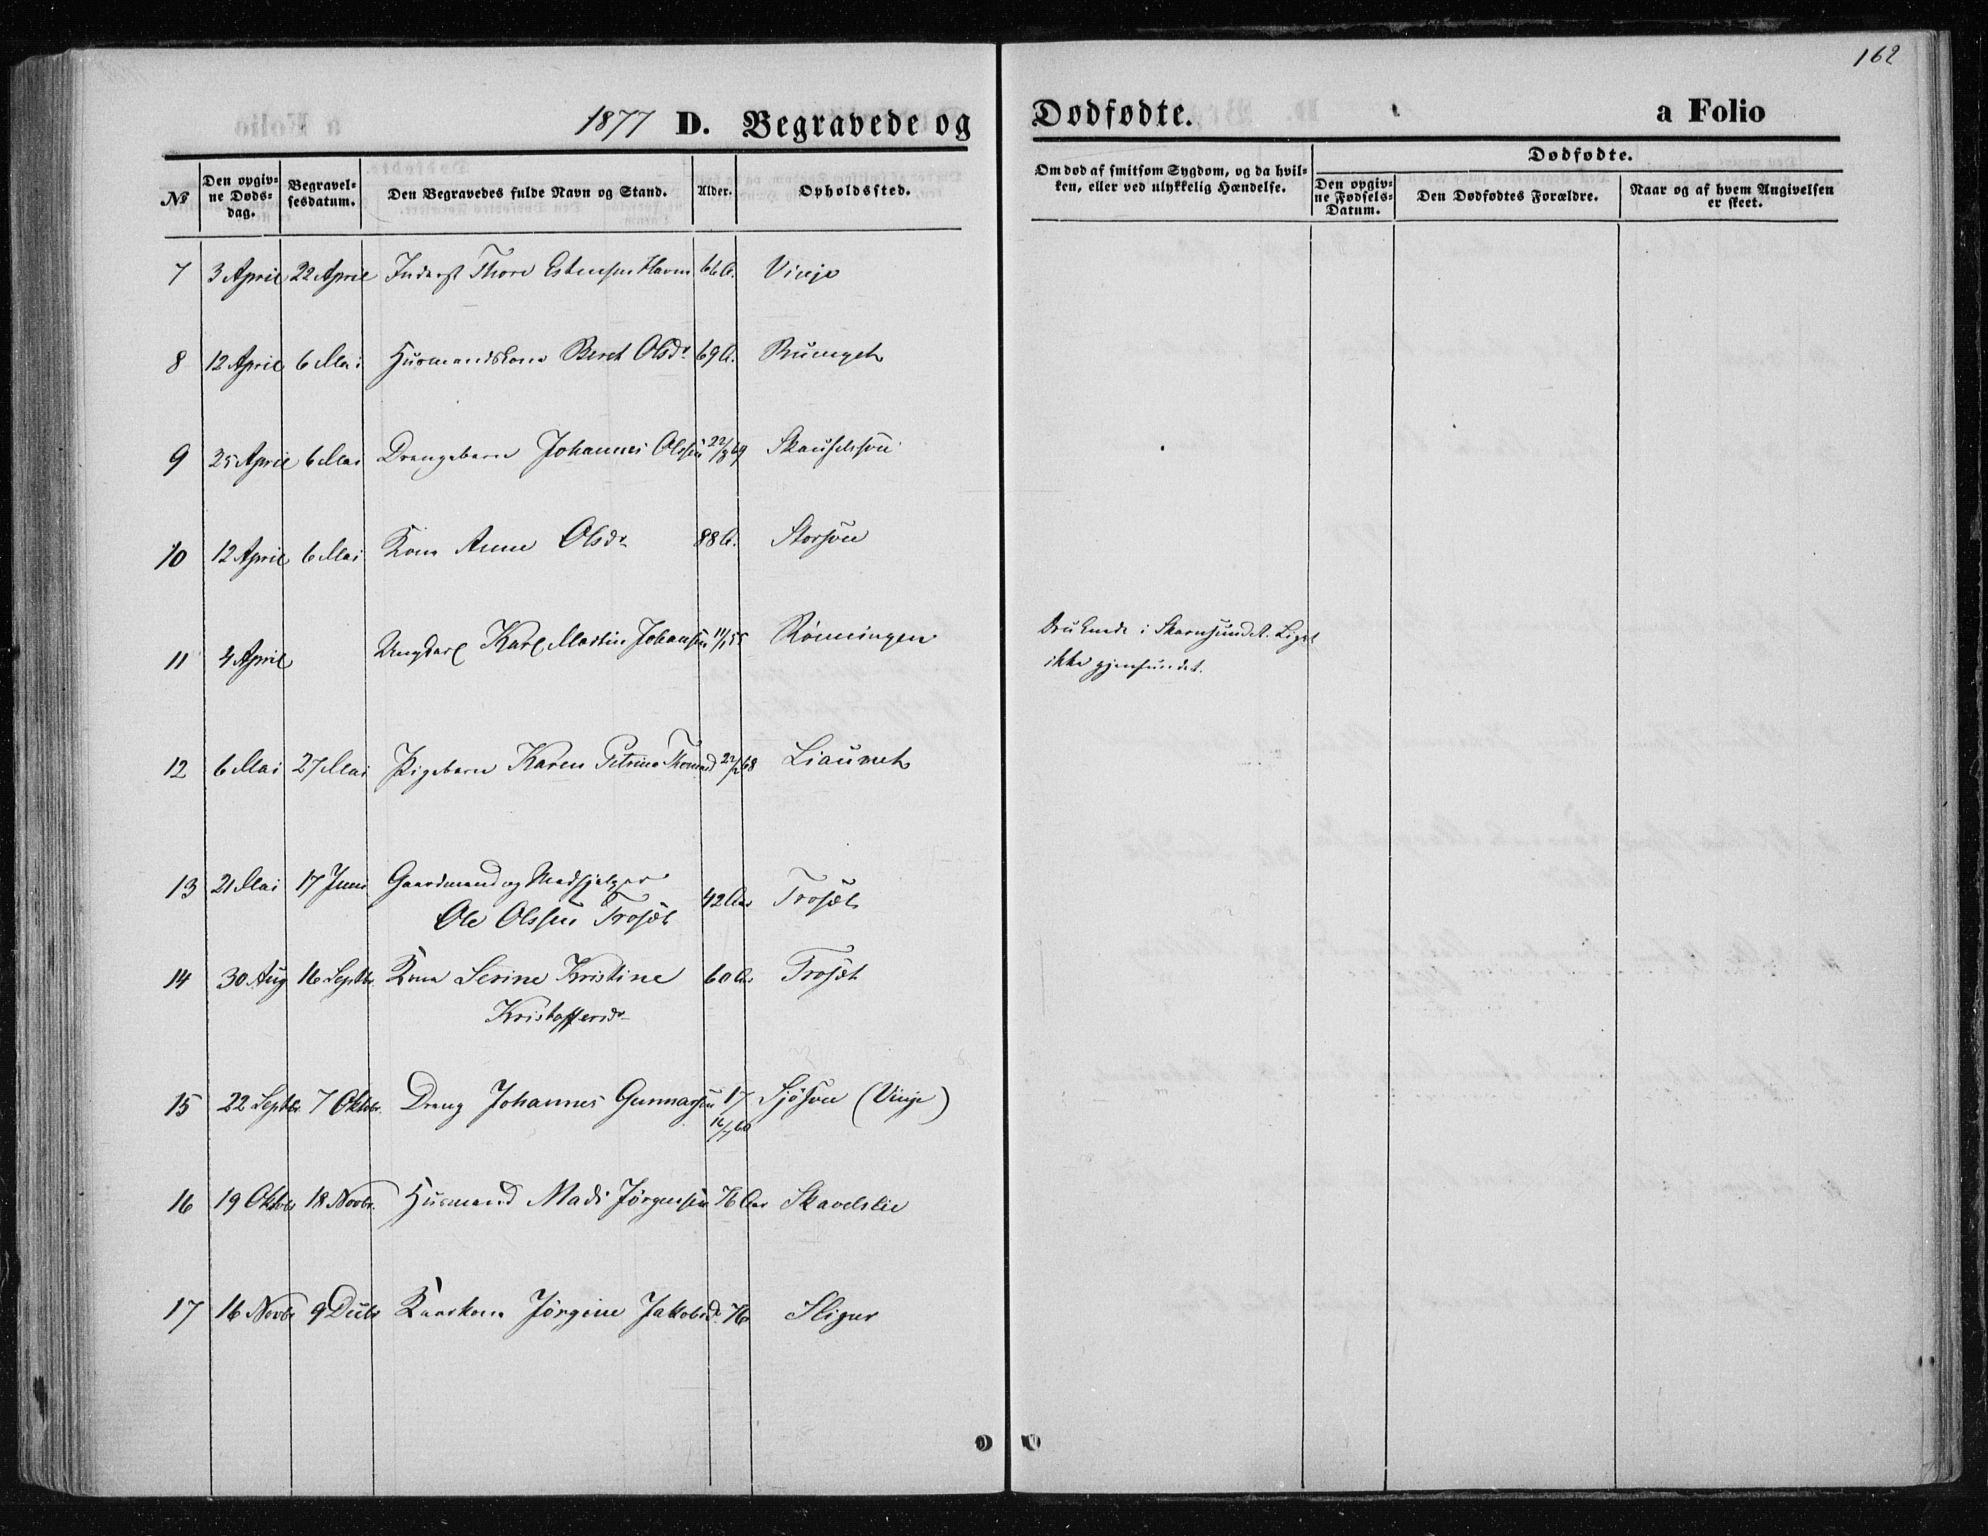 162
1877 D. Begravede og Dødfødte. a Folio
No
Den opgivne Dødsdag.
Begravelsesdatum.
Den Begravedes fulde Navn og Stand.
Alder.
Opholdssted.
Om død af smitsom Sygdom, og da hvilken, eller ved ulykkelig Hændelse.
Dødfødte.
Den opgivne Fødselsdatum.
Den Dødfødtes Forældre.
Naar og af hvem Angivelsen er skeet.
7 3 April 22 April Inderst Thore Estensen 66 A. Vinje
8 12 April 6 Mai Husmandskone Beret Olsdr 69 A.
9 25 April 6 Mai Drengebarn Johannes Olssen 22/8 69
10 12 April 6 Mai Kone Anne Olsdr 88 A. Storsøen
11 4 April Ungkarl Karl Martin Johansen 11/1 55 Rönningen Druknede i Skarnsundet. Liget
ikke gjenfundet.
12 6 Mai 27 Mai Pigebarn Karen Petrine Thomasd 22/2 68 Liaunet
13 21 Mai 17 Juni Gaardmand og Medhjælper
Ole Olssen Trosæt 42 Aar Trosæt
14 30 Aug 16 Septbr. Kone Serine Kristine 60 Aar Trosæt
Kristoffersdr
15 22 Septbr. 7 Oktobr. Dreng Johannes Gunnarsen 17 Sjøsøen (Vinje)
16/7 60
16 19 Oktobr 18 Novbr. Husmand Mads Jørgensen 76 Aar Skavdslie
17 16 Novbr 9 Decbr Kaarkone Jørgine Jakobsd. 76